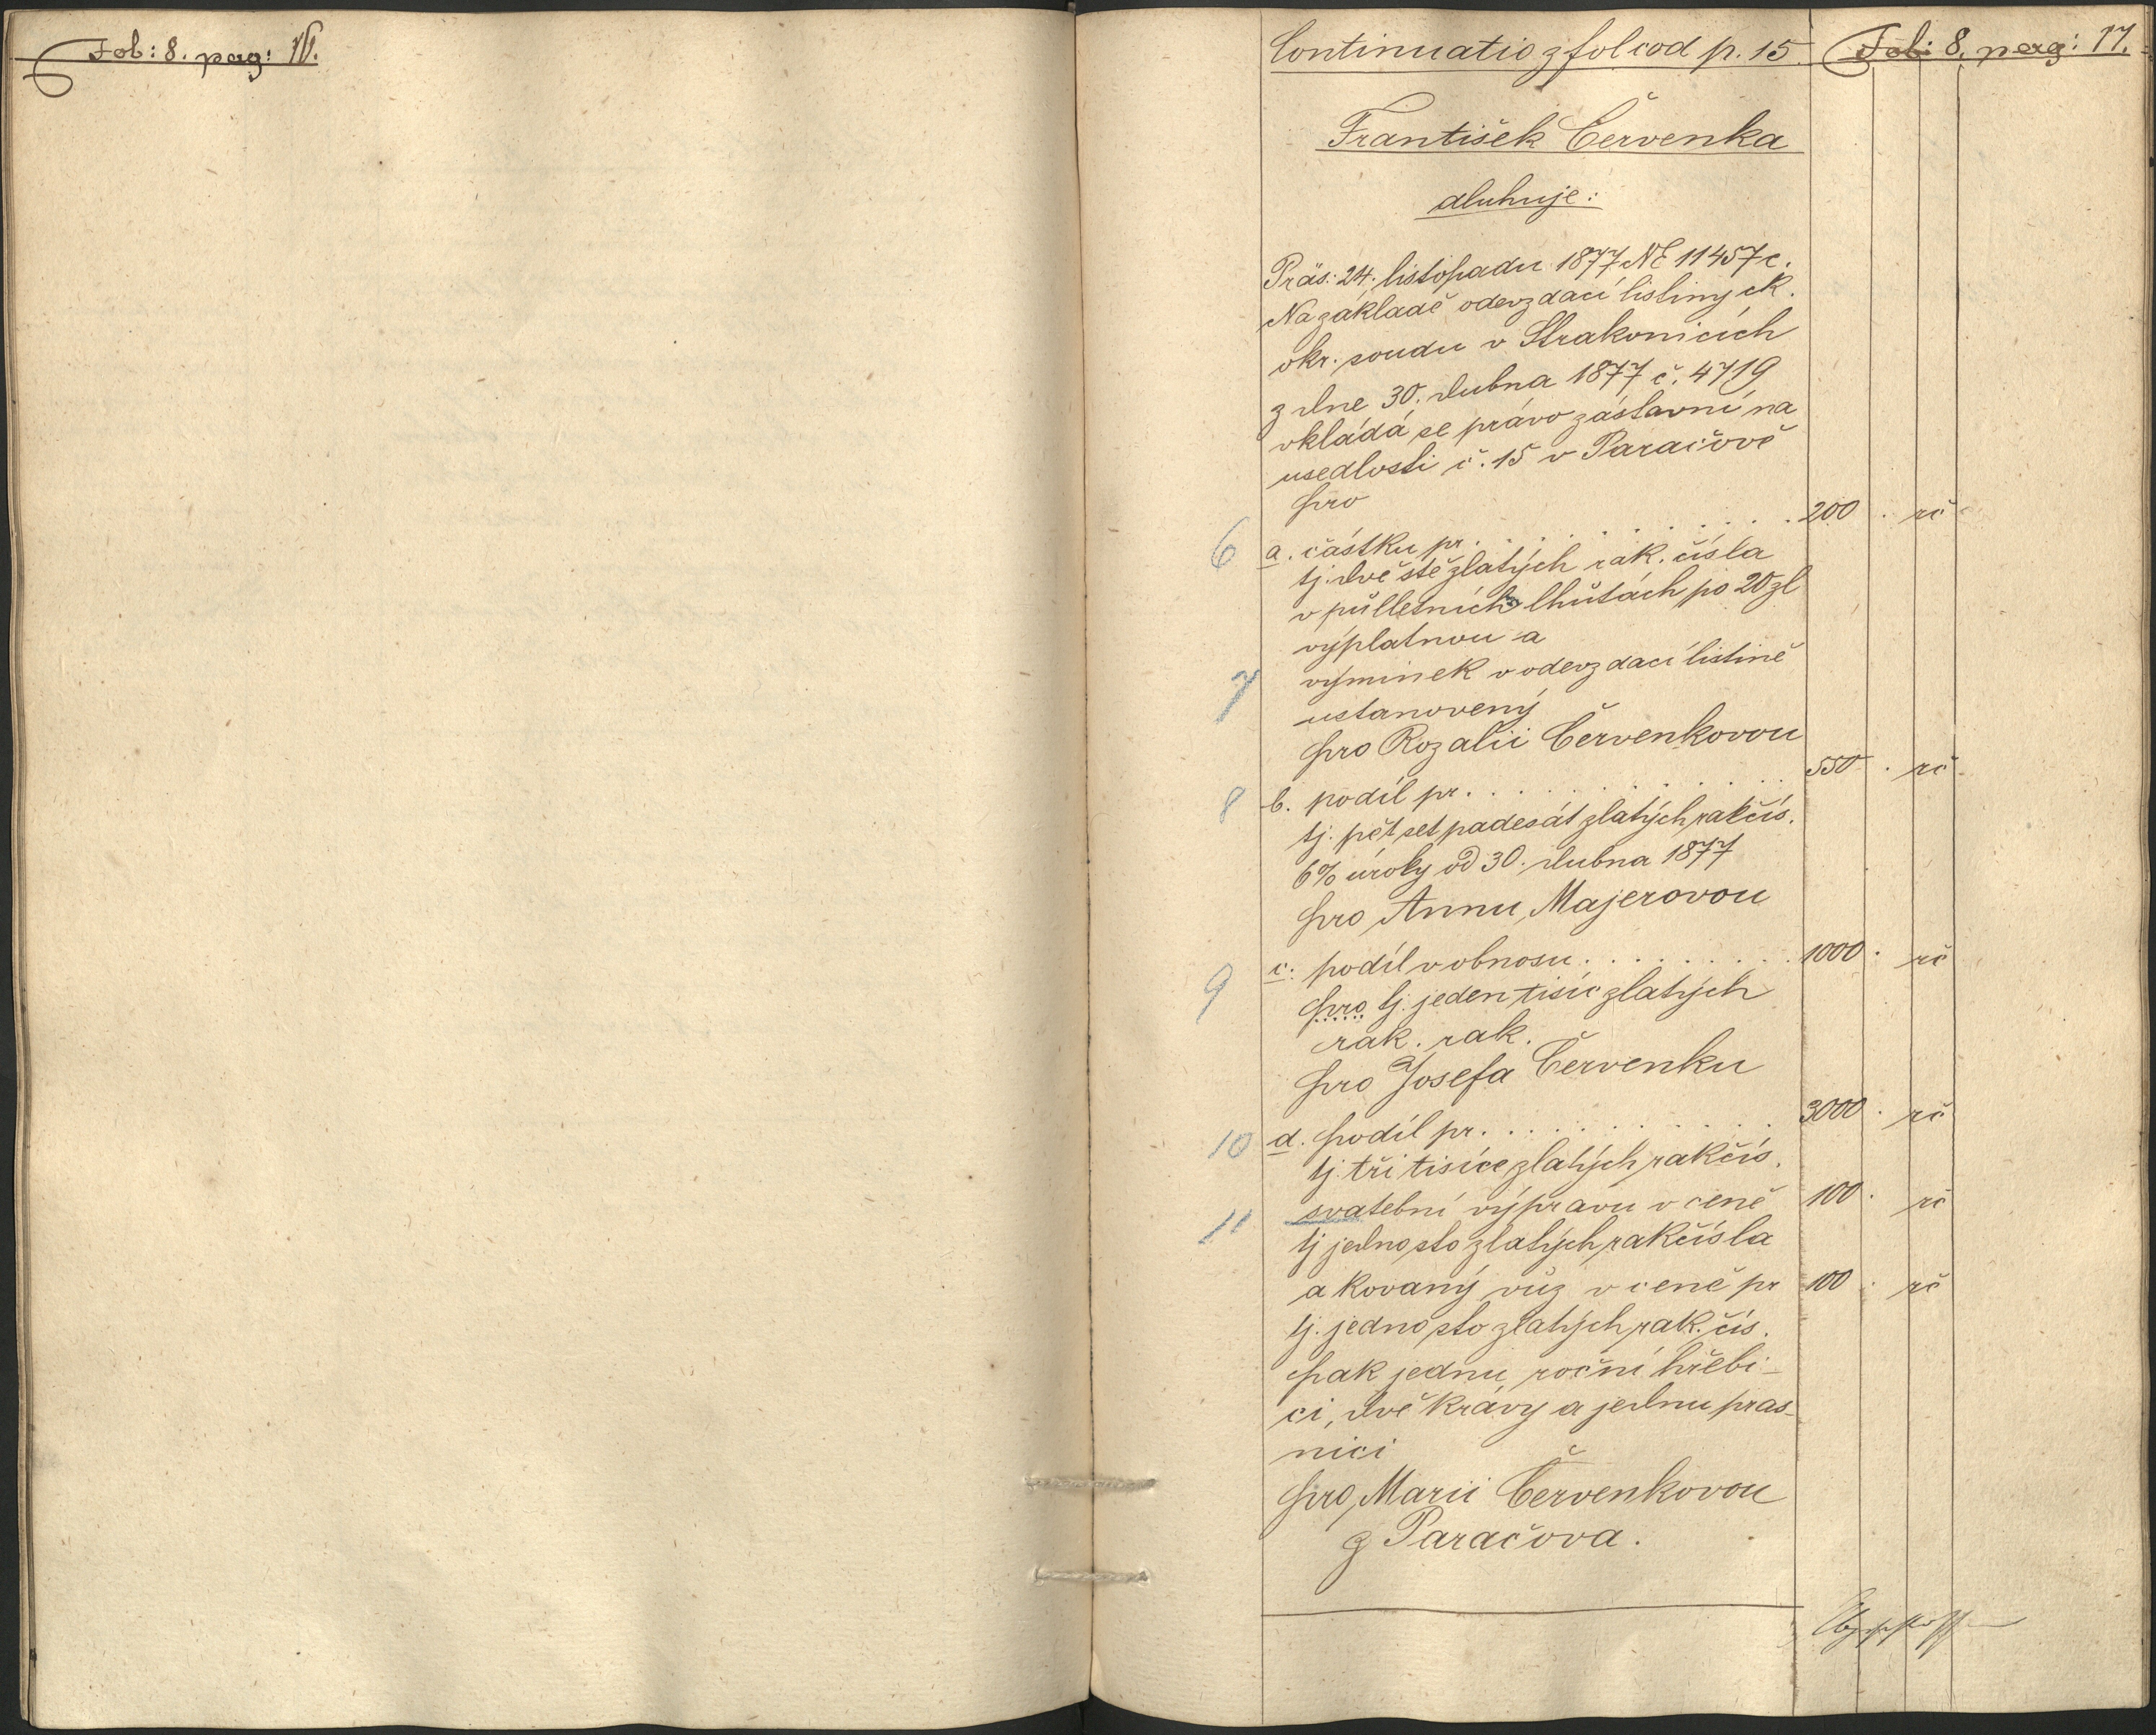 Fol: 8. pag: 16.
Continuatio z fol cod p. 15. Fol: 8. pag: 17.
František Červenka
dluhuje:
Präs: 24. listopadu 1877 NE 11457 c.
Na základě odevzdací listiny ck.
okr. soudu v Strakonicích
z dne 30. dubna 1877 č. 4719
vkládá se právo zástavní na
usedlosti č. 15 v Paračově
pro
6 a. částku pr. . . . . . . . . . 200 . rč
tj. dvě stě zlatých rak. čísla
v půlletních lhůtách po 20 zl
výplatnou a
7 výminek v odevzdací listině
ustanovený
pro Rozalii Červenkovou
8 b. podíl pr. . . . . . . . . . 550 . rč
tj. pět set padesát zlatých rakčís.
6% úroky od 30. dubna 1877
pro Annu Majerovou
9 c. podíl v obnosu . . . . . . . . . 1000 . rč
pro tj. jeden tisíc zlatých
rak. rak.
pro Josefa Červenku
10 d. podíl pr. . . . . . . . . . 3000 . rč
tj. tři tisíce zlatých rakčís.
11 svatební výpravu v ceně 100 . rč
tj jedno sto zlatých rakčísla
a kovaný vůz v ceně pr 100 . rč
tj. jedno sto zlatých rak. čís.
pak jednu roční hřebi-
ci, dvě krávy a jednu pras-
nici
pro Marii Červenkovou
z Paračova.